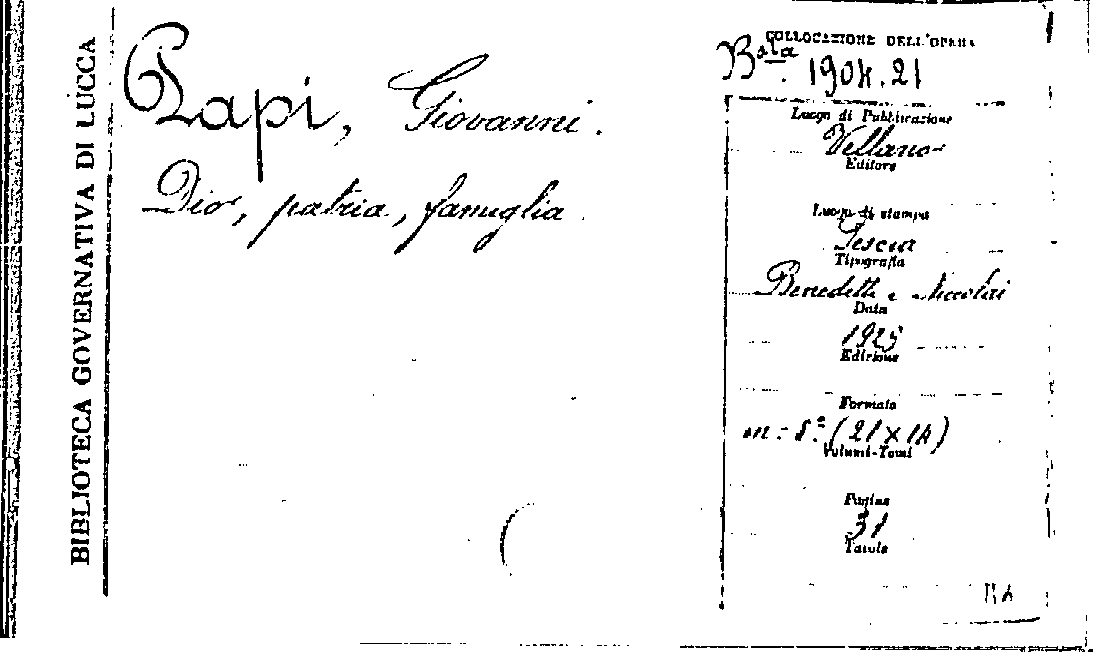 BIBLIOTECA GOVERNATIVA DI LUCCA
Papi, Giovanni.
Dio, patria, famiglia.
COLLOCAZIONE DELL'OPERA
Bta. 1904.21
Luogo di Pubblicazione
Vellano
Editore
Luogo di stampa
Pescia
Tipografia
Benedetti e Niccolai
Data
1925
Edizione
Formato
in-8° (21x14)
Volumi-Tomi
Pagine
31
Tavole